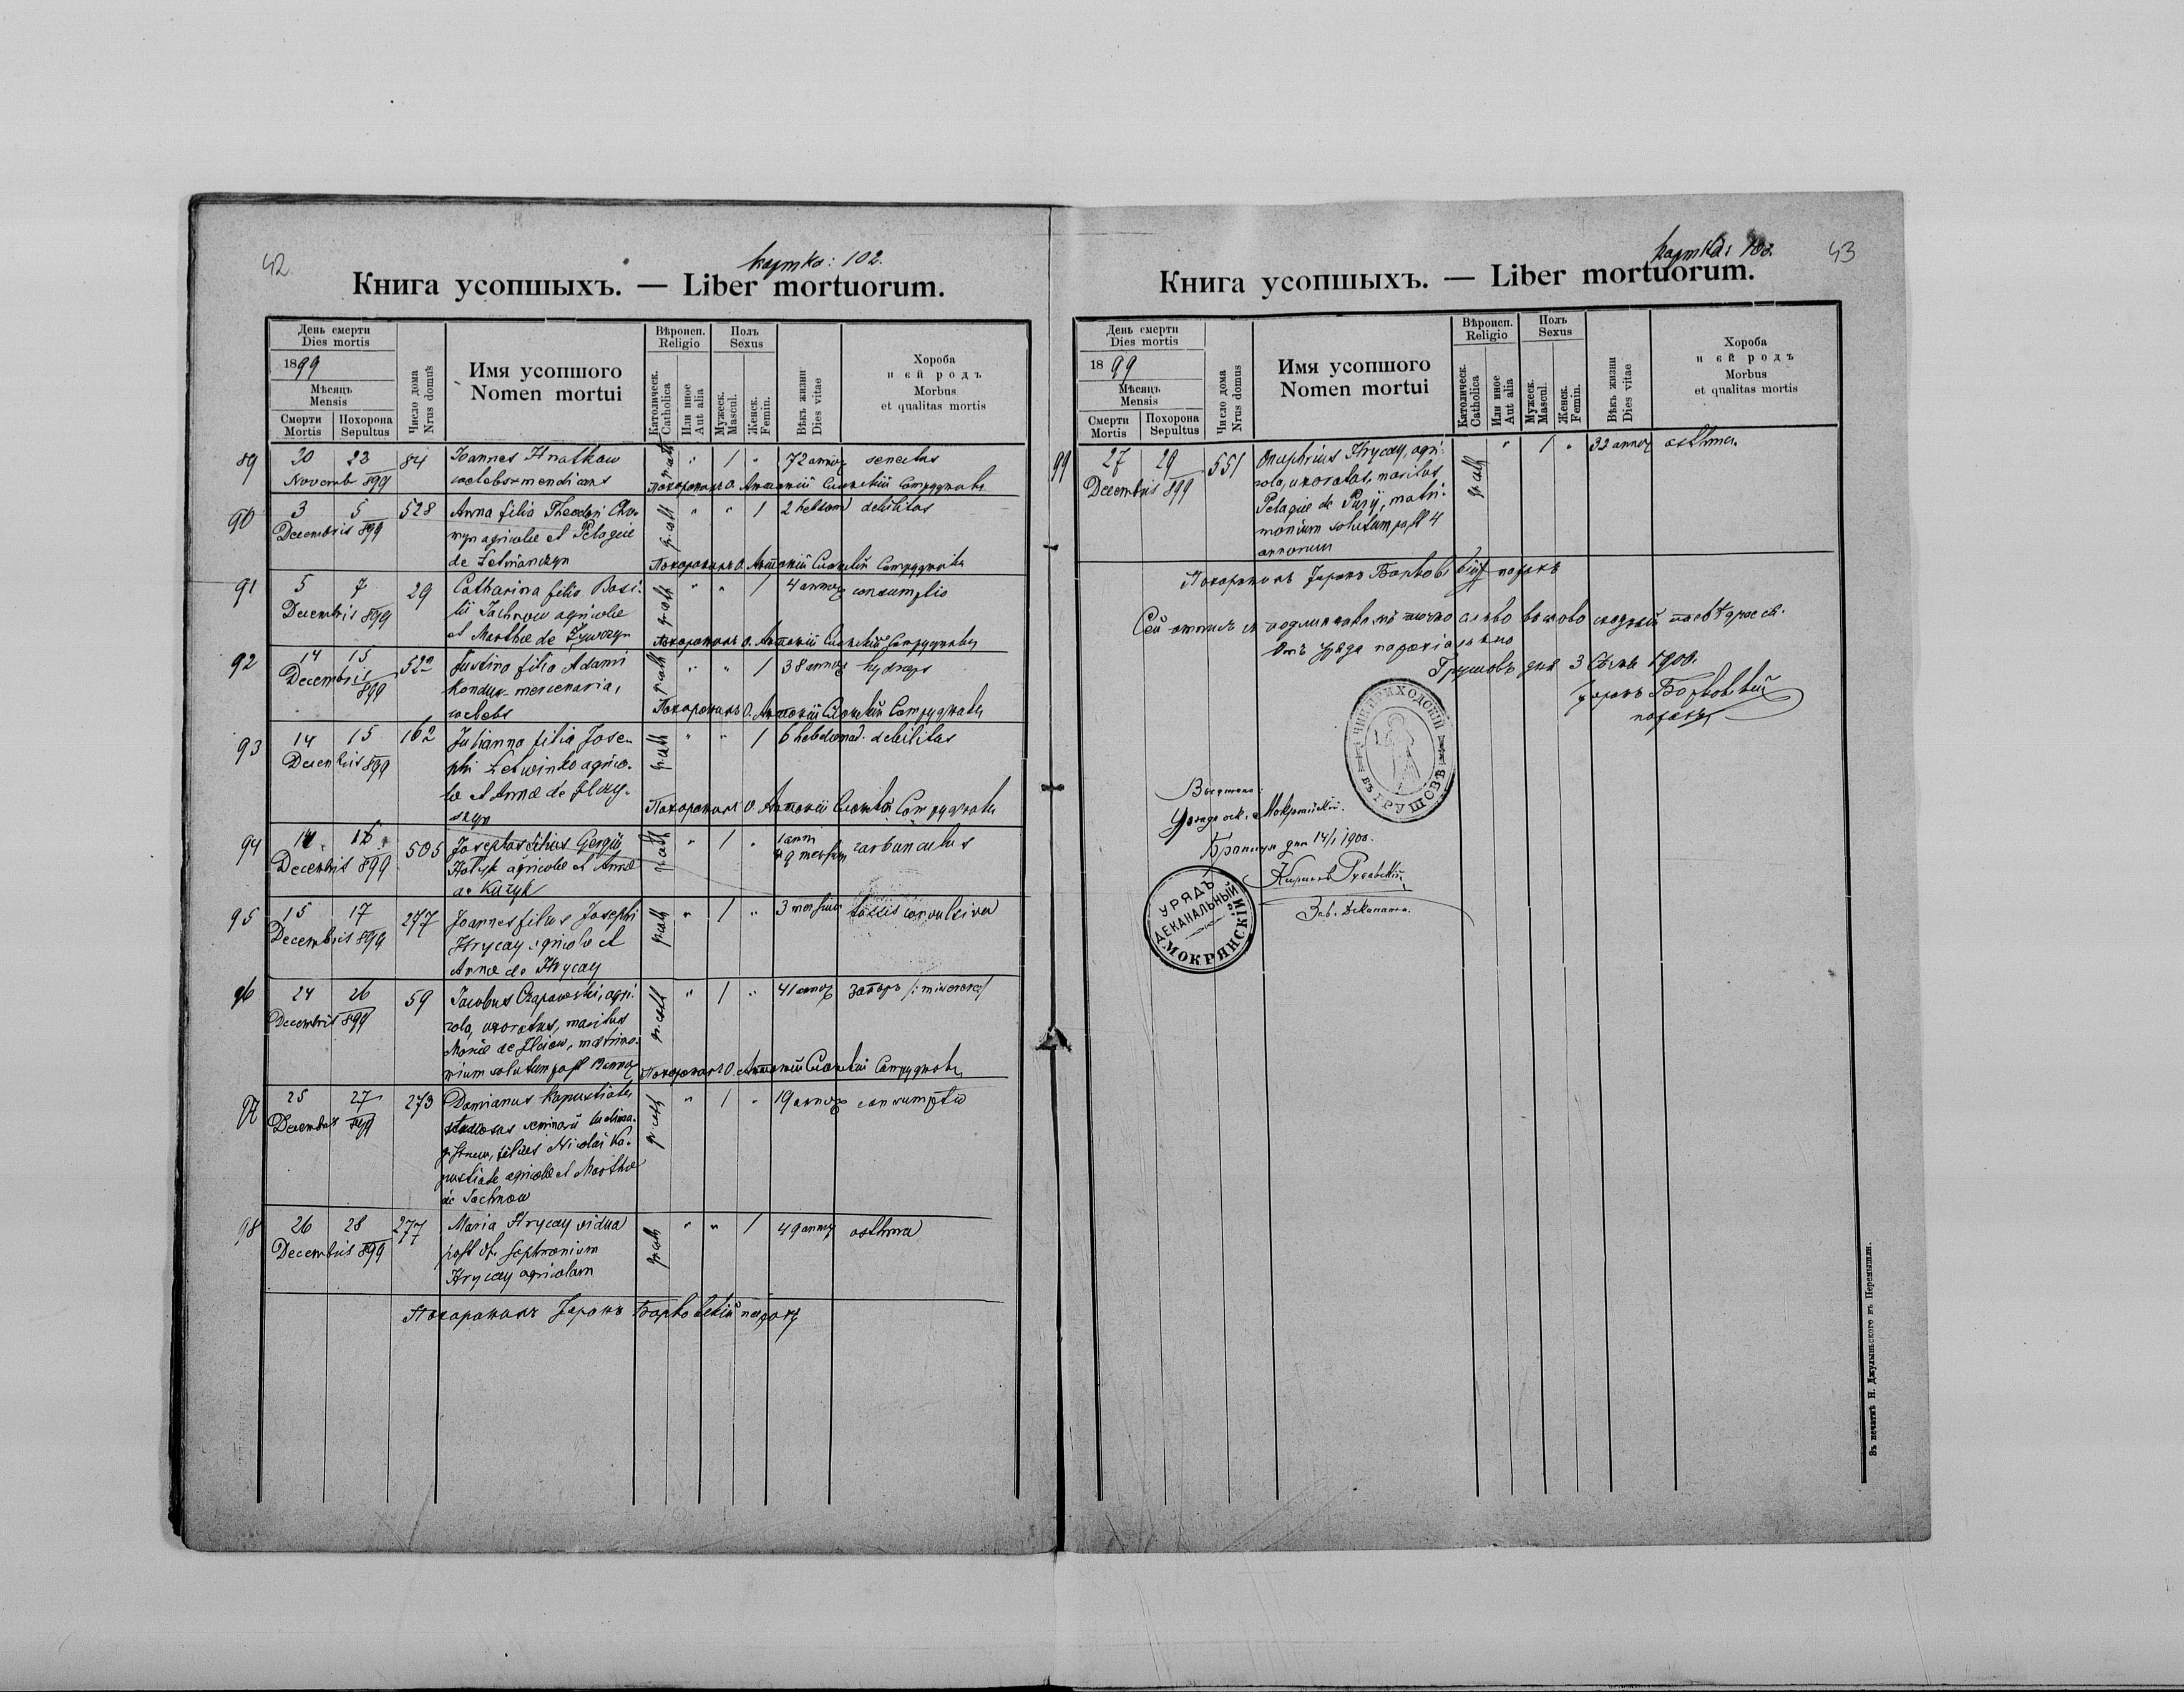 42
картка: 102.
Книга усопшыхъ. — Liber mortuorum.
День смерти
Dies mortis
1899
Мѣсяцъ
Mensis
Смерти
Mortis
Похорона
Sepultus
Число дома
Nrus domus
Имя усопшого
Nomen mortui
Вѣроисп.
Religio
Католическ.
Catholica
Или иное
Aut alia
Полъ
Sexus
Мужеск.
Mascul.
Женск.
Femin.
Вѣкъ жизни
Dies vitae
Хороба
и єй родъ
Morbus
et qualitas mortis
89 20 23 84 Joannes Hnatkow gr. cath " 1 " 72 annor senectus
Novemb 899 coelebs mendicans
Похоронилъ О. Антоній Сотрудникъ
90 3 5 528 Anna filia Theodori gr. cath " " 1 2 hebdom debilitas
Decembris 899 agricolae et Pelagiae
de
Похоронилъ О. Антоній Сотрудникъ
91 5 7 29 Catharina filia Basi- gr. cath " " 1 4 annor consumptio
Decembris 899 lii Jachnow agricolae
et Marthae de
Похоронилъ О. Антоній Сотрудникъ
92 14 15 522 Justina filia Adami gr. cath " " 1 38 annor hydrops
Decembris 899 mercenaria,
coelebs
Похоронилъ О. Антоній Сотрудникъ
93 14 15 162 Julianna filia Jose- gr. cath " " 1 6 hebdomad. debilitas
Decembris 899 phi Letwinko agrico-
lae et Annae de
Похоронилъ О. Антоній Сотрудникъ
94 14 16 505 Josephus filius Georgii gr. cath " 1 " 1 anni
Decembris 899 agricolae et Annae 9 mensium carbunculus
de Kuzyk
95 15 17 277 Joannes filius Josephi gr. cath " 1 " 3 mensium tussis convulsiva
Decembris 899 Hrycay agricolae et
Annae de Hrycay
96 24 26 59 Jacobus Czapowski, agri- gr. cath " 1 " 41 annor запоръ /: miserere /
Decembris 899 cola, uxoratus, maritus
Mariae de Ilciow, matrimo-
nium solutum post annor
Похоронилъ О. Антоній Сотрудникъ
97 25 27 273 Damianus Kapustiak gr. cath " 1 " 19 annor consumptio
Decembris 899 studiosus seminarii ludima-
gistrum, filius Nicolai Ka-
pustiak agricolae et Marthae
de Jachnow
98 26 28 277 Maria Hrycay vidua gr. cath " " 1 49 annor asthma
Decembris 899 post def. Sophronium
Hrycay agricolam
Похоронилъ парохъ
43
картка: 103.
Книга усопшыхъ. — Liber mortuorum.
День смерти
Dies mortis
1899
Мѣсяцъ
Mensis
Смерти
Mortis
Похорона
Sepultus
Число дома
Nrus domus
Имя усопшого
Nomen mortui
Вѣроисп.
Religio
Католическ.
Catholica
Или иное
Aut alia
Полъ
Sexus
Мужеск.
Mascul.
Женск.
Femin.
Вѣкъ жизни
Dies vitae
Хороба
и єй родъ
Morbus
et qualitas mortis
99 27 29 551 Onuphrius Hrycay, agri- gr. cath " 1 " 32 annor asthma
Decembris 899 cola, uxoratus, maritus
Pelagiae de Pury, matri-
monium solutum post 4
annorum
Похоронилъ парохъ
Сей отписъ съ точно слово въ слово
Отъ уряда парохіального
Грушовъ дня 3 1900.
парохъ
ЧИН. ПРИХОДСКІЙ ВЪ ГРУШОВѢ
Мокрянскій.
дня 14/1 1900.
Зав. деканата.
УРЯДЪ ДЕКАНАЛЬНЫЙ МОКРЯНСКІЙ
Въ печатнѣ И. Джулыньского въ Перемышли.